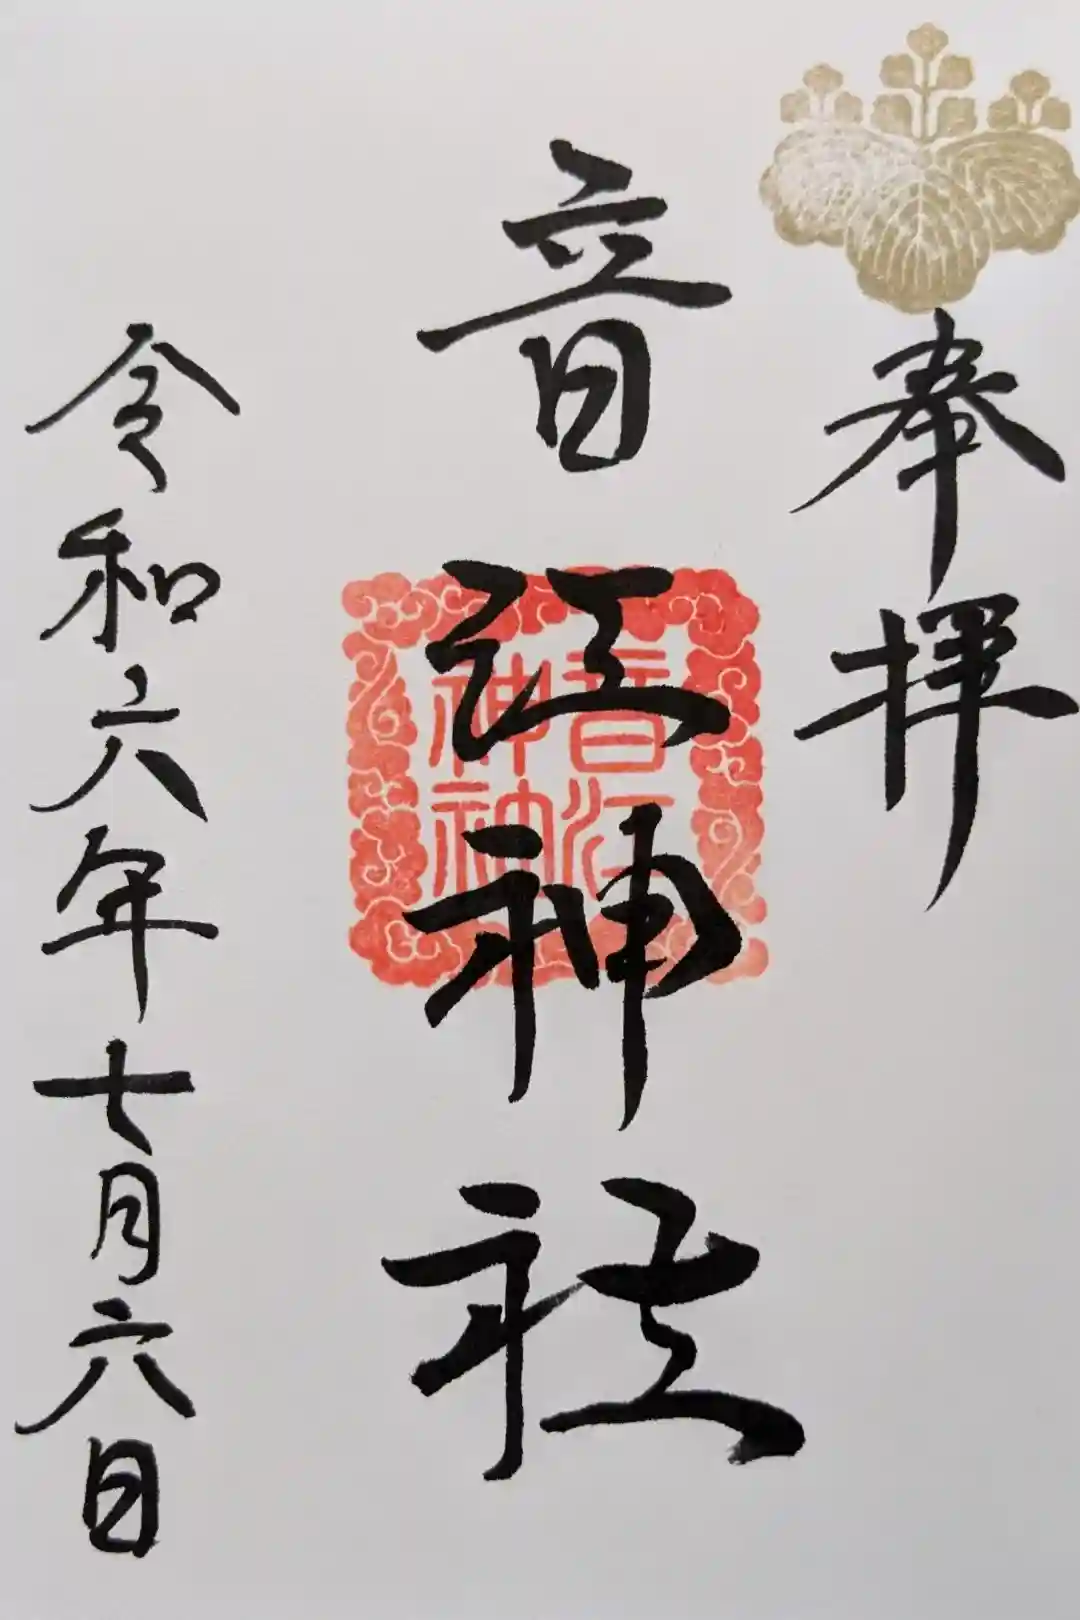 奉拝
音江神社
音江
神社
令和六年七月六日